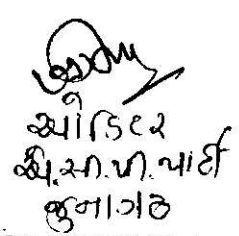 ઓડિટર
એ.સી.પી. પાર્ટી
જુનાગઢ